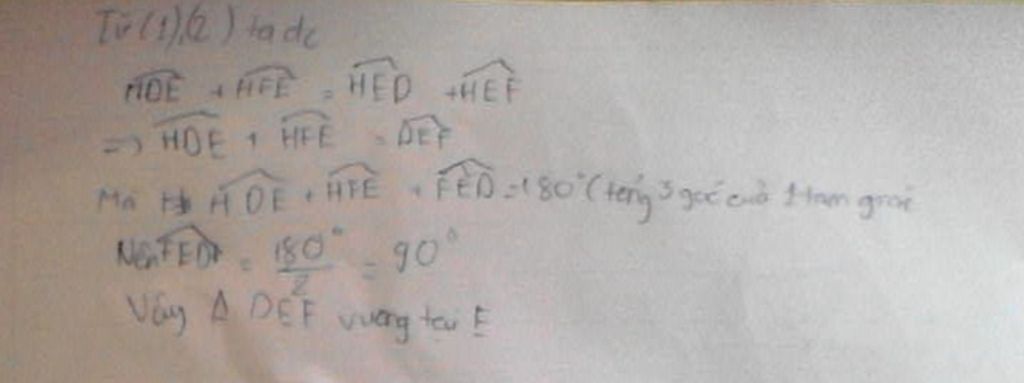 Từ (1),(2) ta đc
HDE + HFE = HED + HEF
=> HDE + HFE = DEF
Mà HDE + HFE + FED = 180° (tổng 3 góc của 1 tam giác
Nên FED = 180°/2 = 90°
Vậy Δ DEF vuông tại E